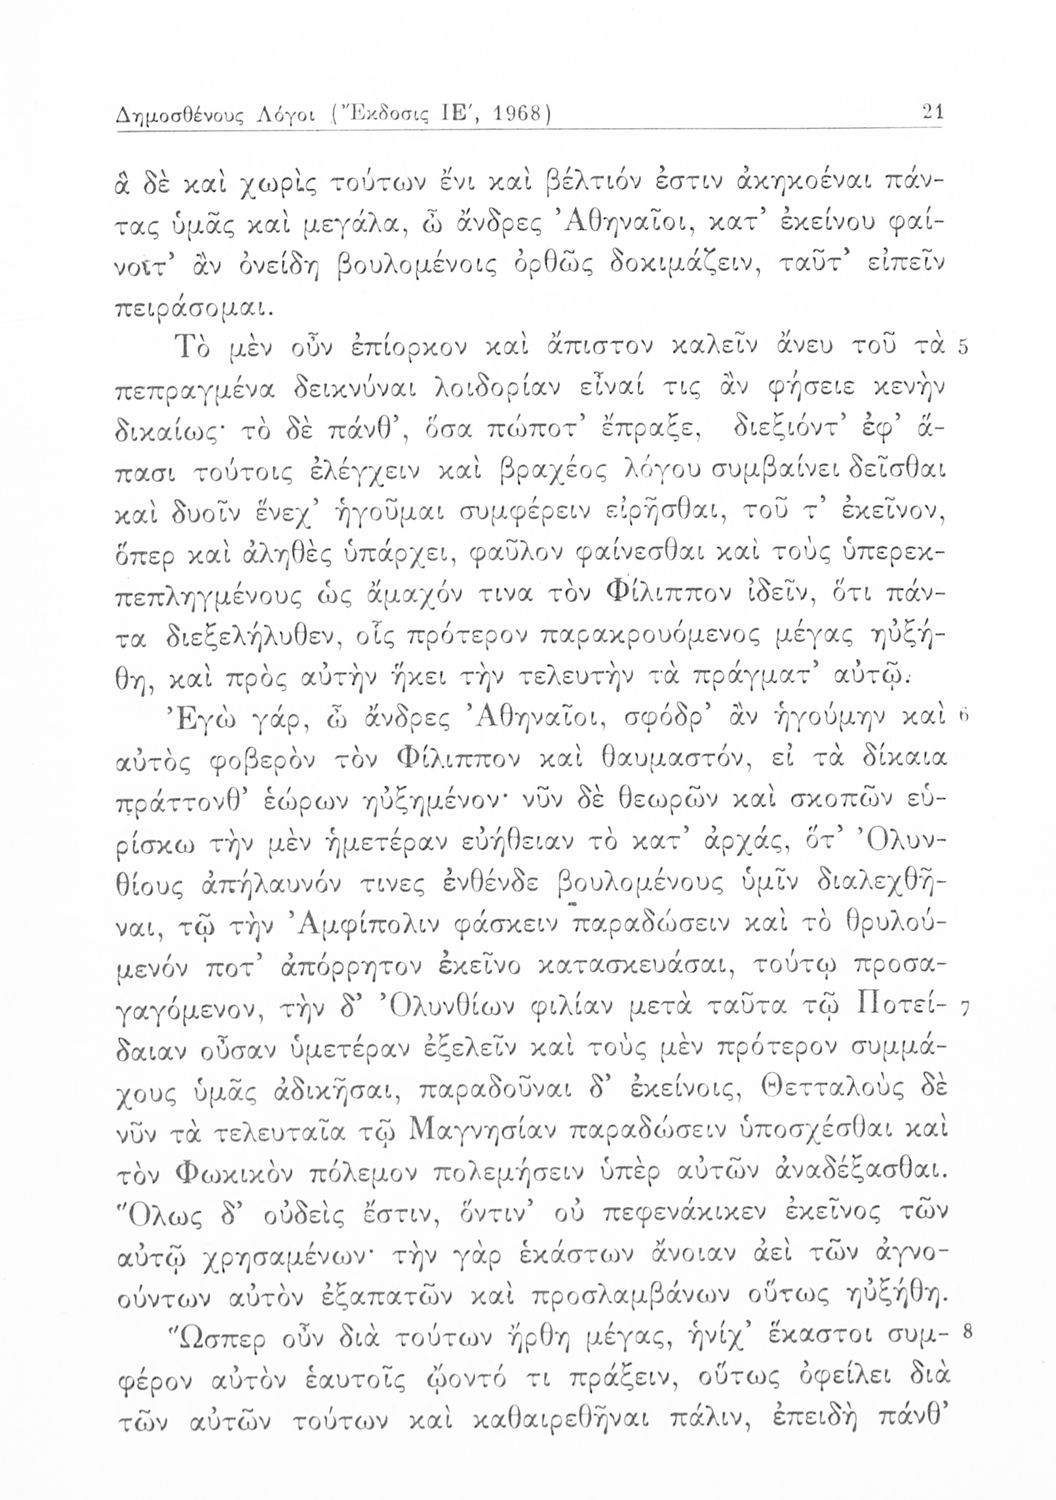 Δημοσθένους Λόγοι (Ἔκδοσις ΙΕ΄, 1968) 21
ἃ δὲ καὶ χωρὶς τούτων ἔνι καὶ βέλτιόν ἐστιν ἀκηκοέναι πάν-
τας ὑμᾶς καὶ μεγάλα, ὦ ἄνδρες Ἀθηναῖοι, κατ’ ἐκείνου φαί-
νοιτ’ ἂν ὀνείδη βουλομένοις ὀρθῶς δοκιμάζειν, ταῦτ’ εἰπεῖν
πειράσομαι.
Τὸ μὲν οὖν ἐπίορκον καὶ ἄπιστον καλεῖν ἄνευ τοῦ τὰ 5
πεπραγμένα δεικνύναι λοιδορίαν εἶναί τις ἂν φήσειε κενὴν
δικαίως· τὸ δὲ πάνθ’, ὅσα πώποτ’ ἔπραξε, διεξιόντ’ ἐφ’ ἅ-
πασι τούτοις ἐλέγχειν καὶ βραχέος λόγου συμβαίνει δεῖσθαι
καὶ δυοῖν ἕνεχ’ ἡγοῦμαι συμφέρειν εἰρῆσθαι, τοῦ τ’ ἐκεῖνον,
ὅπερ καὶ ἀληθὲς ὑπάρχει, φαῦλον φαίνεσθαι καὶ τοὺς ὑπερεκ-
πεπληγμένους ὡς ἄμαχόν τινα τὸν Φίλιππον ἰδεῖν, ὅτι πάν-
τα διεξελήλυθεν, οἷς πρότερον παρακρουόμενος μέγας ηὐξή-
θη, καὶ πρὸς αὐτὴν ἥκει τὴν τελευτὴν τὰ πράγματ’ αὐτῷ.
Ἐγὼ γάρ, ὦ ἄνδρες Ἀθηναῖοι, σφόδρ’ ἂν ἡγούμην καὶ 6
αὐτὸς φοβερὸν τὸν Φίλιππον καὶ θαυμαστόν, εἰ τὰ δίκαια
πράττονθ’ ἑώρων ηὐξημένον· νῦν δὲ θεωρῶν καὶ σκοπῶν εὑ-
ρίσκω τὴν μὲν ἡμετέραν εὐήθειαν τὸ κατ’ ἀρχάς, ὅτ’ Ὀλυν-
θίους ἀπήλαυνόν τινες ἐνθένδε βουλομένους ὑμῖν διαλεχθῆ-
ναι, τῷ τὴν Ἀμφίπολιν φάσκειν παραδώσειν καὶ τὸ θρυλού-
μενόν ποτ’ ἀπόρρητον ἐκεῖνο κατασκευάσαι, τούτῳ προσα-
γαγόμενον, τὴν δ’ Ὀλυνθίων φιλίαν μετὰ ταῦτα τῷ Ποτεί- 7
δαιαν οὖσαν ὑμετέραν ἐξελεῖν καὶ τοὺς μὲν πρότερον συμμά-
χους ὑμᾶς ἀδικῆσαι, παραδοῦναι δ’ ἐκείνοις, Θετταλοὺς δὲ
νῦν τὰ τελευταῖα τῷ Μαγνησίαν παραδώσειν ὑποσχέσθαι καὶ
τὸν Φωκικὸν πόλεμον πολεμήσειν ὑπὲρ αὐτῶν ἀναδέξασθαι.
Ὅλως δ’ οὐδεὶς ἔστιν, ὅντιν’ οὐ πεφενάκικεν ἐκεῖνος τῶν
αὐτῷ χρησαμένων· τὴν γὰρ ἑκάστων ἄνοιαν ἀεὶ τῶν ἀγνο-
ούντων αὐτὸν ἐξαπατῶν καὶ προσλαμβάνων οὕτως ηὐξήθη.
Ὥσπερ οὖν διὰ τούτων ἤρθη μέγας, ἡνίχ’ ἕκαστοι συμ- 8
φέρον αὐτὸν ἑαυτοῖς ᾤοντό τι πράξειν, οὕτως ὀφείλει διὰ
τῶν αὐτῶν τούτων καὶ καθαιρεθῆναι πάλιν, ἐπειδὴ πάνθ’